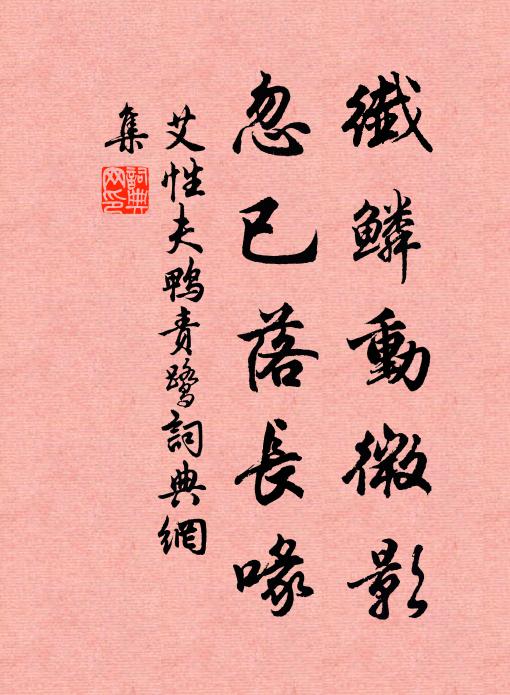 纖鱗動微影
忽已落長喙
艾性夫鴨責鷺詞典網
集
詞典
网印